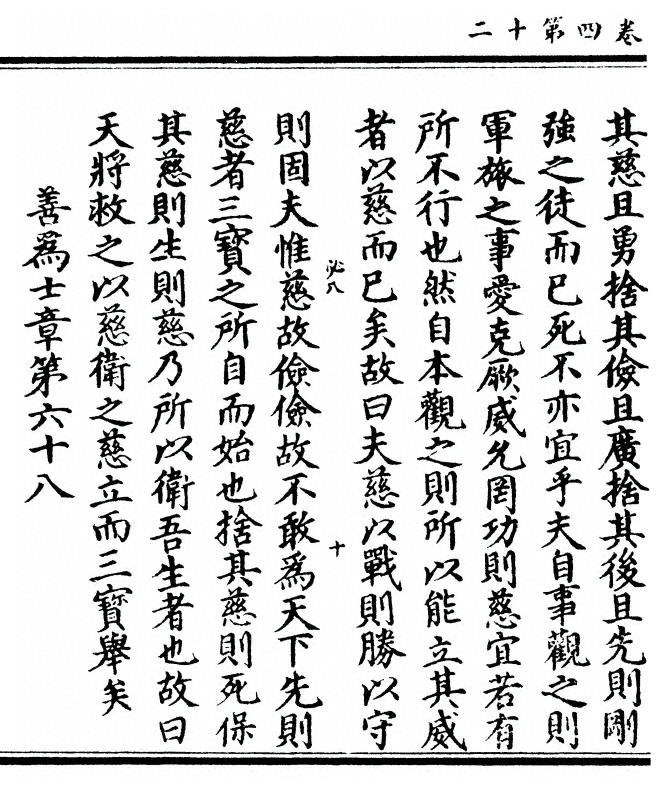 卷四第十二
其慈且勇捨其儉且廣捨其後且先則剛
強之徒而已死不亦宜乎夫自事觀之則
軍旅之事愛克厥威允罔功則慈宜若有
所不行也然自本觀之則所以能立其威
者以慈而已矣故曰夫慈以戰則勝以守
必八
十
則固夫惟慈故儉儉故不敢為天下先則
慈者三寶之所自而始也捨其慈則死保
其慈則生則慈乃所以衛吾生者也故曰
天將救之以慈衛之慈立而三寶舉矣
善為士章第六十八